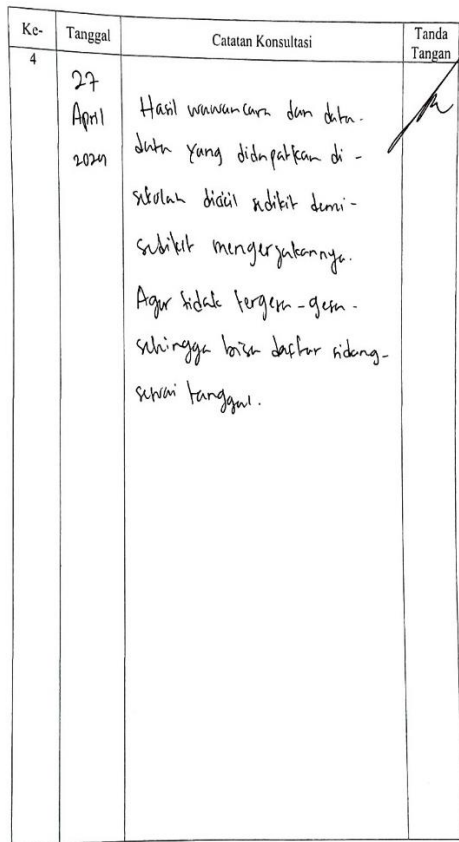 Ke-
Tanggal
Catatan Konsultasi
Tanda
Tangan
4
27
April
2024
Hasil wawancara dan data-
data yang didapatkan di-
sekolah dicicil sedikit demi-
sedikit mengerjakannya.
Agar tidak tergesa-gesa-
sehingga bisa daftar sidang-
sesuai tanggal.